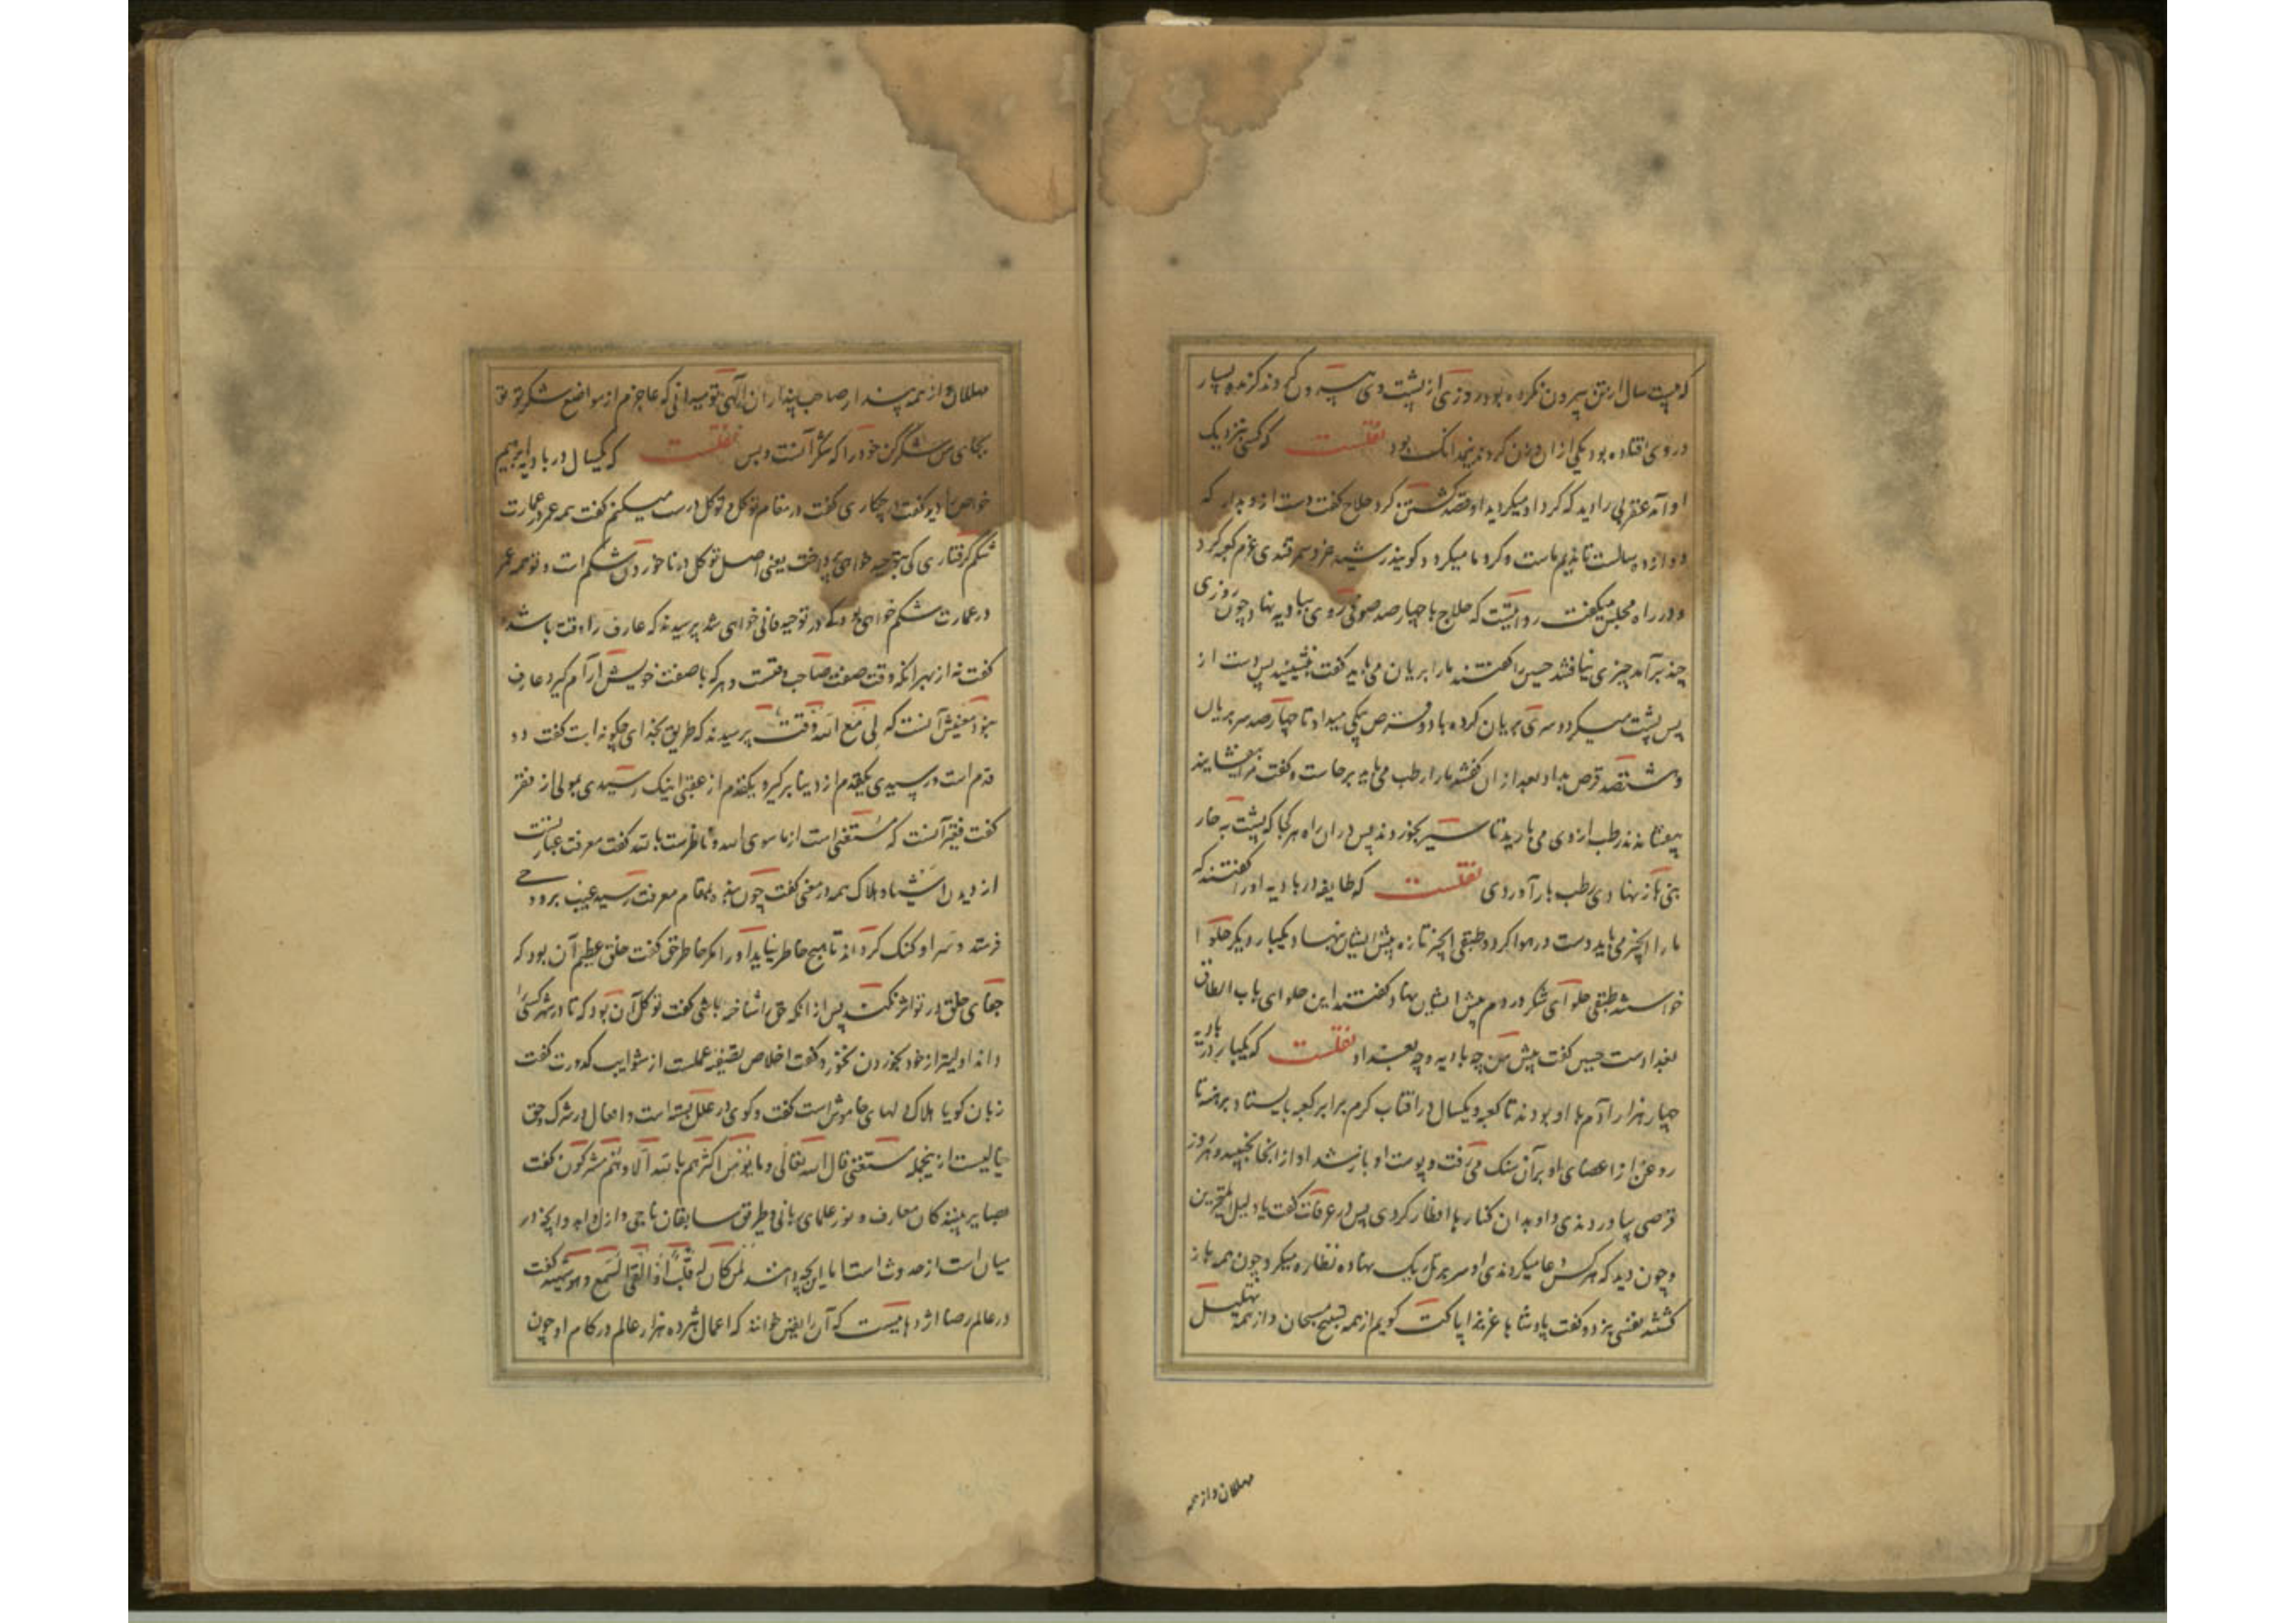 که بیست سال از تن بیرون نکرده بود روزی از پشت وی بیرون کردند گزنده بسیار
در وی افتاده بود یکی از آن وزن کردند نیم دانک بود نقلست که کسی بنزدیک
او آمد عقربی را دید که کرد او میکردید او قصد کشتن کرد حلاج کفت دست ازو بدار که
دوازده سالست تا ندیم ماست و کرد ما میکردد کویند رشید خرد سمرقندی عزم کعبه کرد
و در راه مجلس میکفت روایتست که حلاج با چهارصد صوفی روی ببادیه نهاد چون روزی
چند برآمد چیزی نیافتند حسین را کفتند ما را سر بریان می باید کفت بنشینید پس دست از
پس پشت میکرد و سری بریان کرده با دو قرص بیکی میداد تا چهارصد سر بریان
و هشتصد قرص بداد بعد از آن کفتند ما را رطب می باید برخاست و کفت مرا بیفشانید
بیفشاندند رطب از وی می بارید تا سیر بخوردند پس در آن راه هر کجا که پشت به خار
بنی باز نهادی رطب بار آوردی نقلست که طایفه در بادیه او را کفتند که
ما را انجیر می باید دست در هوا کرد و طبقی انجیر تازه پیش ایشان نهاد و یکبار دیگر حلوا
خواستند طبقی حلوای شکر در دم پیش ایشان نهاد کفتند این حلوای باب الطاق
بغدادست حسین کفت پیش من چه بادیه و چه بغداد نقلست که یکبار در بادیه
چهار هزار آدم با او بودند تا کعبه و یکسال در افتاب کرم برابر کعبه بایستاد برهنه تا
روغن از اعضای او بر آن سنک می رفت و پوست او باز شد او از انجا نجنبید و هر روز
قرصی بیاوردندی و او بدان کنارها افطار کردی پس در عرفات کفت یا دلیل المتحیرین
و چون دید که هر کس دعا میکردندی او سر بر تل ریک نهاده نظاره میکرد چون همه باز
کشتند نفسی بزد و کفت پادشاها عزیزا پاکت کویم از همه تسبیح مسبحان و از همه تهلیل
مهللان و از همه
مهللان و از همه پندار صاحب پنداران الهی تو میدانی که عاجزم از مواضع شکر تو تو
بجای من شکر کن خود را که شکر آنست و بس نقلست که یکسال در بادیه ابرهیم
خواص را دید کفت در چه کاری کفت در مقام توکل و توکل درست میکنم کفت همه عمر در عمارت
شکم کرفتاری کی بتوحید خواهی پرداخت یعنی اصل توکل در ناخوردن شکم است و تو همه عمر
در عمارت شکم خواهی بود که در توحید فانی خواهی شد پرسیدند که عارف را وقت باشد
کفت نه از بهر انکه وقت صفت صاحب وقتست و هر که با صفت خویش ارام کیرد عارف
نبود معنیش آنست که لی مع الله وقت پرسیدند که طریق بخدای چکونه است کفت دو
قدم است و رسیدی یکقدم از دنیا برکیر و یکقدم از عقبی اینک رسیدی بمولی از فقر
کفت فقیر آنست که مستغنی است از ما سوی الله و ناظرست بالله کفت معرفت عبارتست
از دیدن اشیا و هلاک همه در معنی کفت چون بنده بمقام معرفت رسید غیب برو وحی
فرستد و سر او کنک کرداند تا هیچ خاطر نیاید او را مکر خاطر حق کفت خلق عظیم آن بود که
جفای خلق در تو اثر نکند پس از انکه حق را شناخته باشی کفت توکل آن بود که تا در شهر کسی را
داند اولیتر از خود بخوردن نخورد کفت اخلاص تصفیه عملست از شوایب کدورت کفت
زبان کویا هلاک دلهای خاموش است کفت و کوی در علل بسته است و افعال در شرک و حق
خالیست از ینجمله مستغنی قال الله تعالی و ما یؤمن اکثرهم بالله الا و هم مشرکون کفت
بصایر بینندکان معارف و نور علمای ربانی و طریق سابقان ناجی و ازل و ابد و آنچه در
میان است از حدوث است اما این بچه دانند لمن کان له قلب او القی السمع و هو شهید کفت
در عالم رضا اژدهایست که آن را یقین خوانند که اعمال هژده هزار عالم در کام او چون